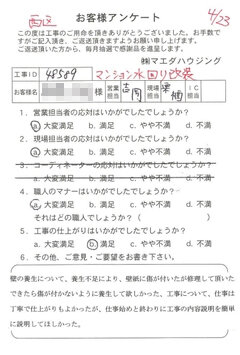 西区
お客様アンケート
4/23
この度は工事のご用命を頂きありがとうございました。お手数で
すがご記入頂き、ご返送頂きますようお願い申し上げます。
ご返送頂きますと、毎月抽選で感謝品を進呈します。
㈱マエダハウジング
工事ID 48589 マンション水回り改装
お客様名 様 営業担当 吉岡 現場担当 IC担当
1．営業担当者の応対はいかがでしたでしょうか？
a.大変満足 b.満足 c.やや不満 d.不満
2．現場担当者の応対はいかがでしたでしょうか？
a.大変満足 b.満足 c.やや不満 d.不満
3．コーディネーターの応対はいかがでしたでしょうか？
a.大変満足 b.満足 c.やや不満 d.不満
4．職人のマナーはいかがでしたでしょうか？
a.大変満足 b.満足 c.やや不満 d.不満
それはどの職人でしょうか？（ ）
5．工事の仕上がりはいかがでしたでしょうか？
a.大変満足 b.満足 c.やや不満 d.不満
6．その他、ご意見・ご要望をお書き下さい。
壁の養生について、養生不足により、壁紙に傷が付いたが修理して頂いた
できたら傷が付かないように養生して欲しかった、工事について、仕事は
丁寧で仕上がりもよかったが、仕事始めと終わりに工事の内容説明を簡単
に説明してほしかった。